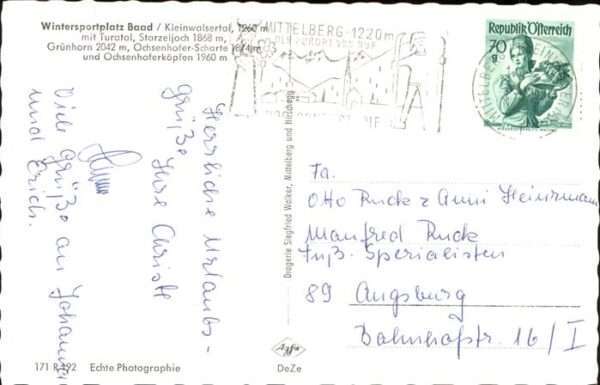 Wintersportplatz Baad / Kleinwalsertal, 1260 m
mit Turatal, Starzeljoch 1868 m,
Grünhorn 2042 m, Ochsenhofer-Scharte
und Ochsenhoferköpfen 1960 m
MITTELBERG-1220m
Republik Österreich
70
g
Herrliche Urlaubs-
grüße Ihre Christl
Viele Grüße an Johanna
und Erich.
Drogerie Siegfried Walker, Mittelberg und Hirschegg
Fa.
Otto Ruck & Anni Heinzmann
Manfred Ruck
Fuß-Spezialisten
89 Augsburg
Bahnhofstr. 16/I
171 R 192 Echte Photographie
Agfa
DeZe